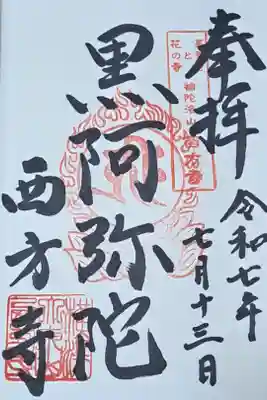 奉拝
令和七年
七月十三日
黒阿弥陀
西方寺
花の寺
と
補陀洛山